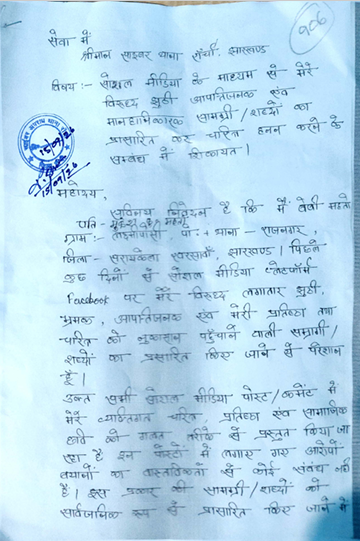 906
सेवा में
श्रीमान साइबर थाना राँची, झारखण्ड
विषय :- सोशल मीडिया के माध्यम से मेरे
विरुध्द झुठी आपत्तिजनक एवं
मानहानिकारक सामग्री / शब्दों का
प्रसारित कर चरित्र हनन करने के
सम्बंध में शिकायत।
15/09/26
15/09/26
महोदय,
सविनय निवेदन है कि मैं बेबी महतो
पति -
ग्राम :- पो + थाना - राजनगर,
जिला - सरायकेला खरसावाँ, झारखण्ड। पिछले
कुछ दिनों से सोशल मीडिया प्लेटफॉर्म
Facebook पर मेरे विरुध्द लगातार झुठी,
भ्रमक, आपत्तिजनक एवं मेरी प्रतिष्ठा तथा
चरित्र को नुकसान पहुँचाने वाली सामग्री/
शब्दों का प्रसारित किए जाने से परेशान
हूँ।
उक्त सभी सोशल मीडिया पोस्ट/कमेंट में
मेरे व्यक्तिगत चरित्र, प्रतिष्ठा एवं सामाजिक
छवि को गलत तरीके से प्रस्तुत किया जा
रहा है इन पोस्टों में लगाए गए आरोपों
बयानों का वास्तविकता से कोई संबंध नहीं
है। इस प्रकार की सामग्री/शब्दों को
सार्वजनिक रूप से प्रासारित किए जाने से